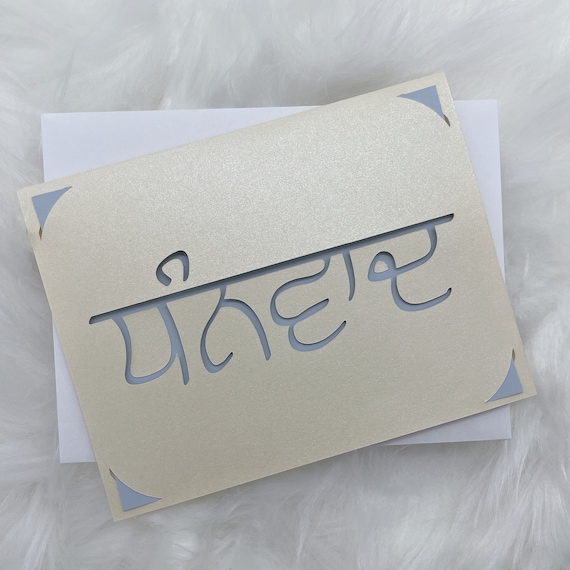 ਧੰਨਵਾਦ